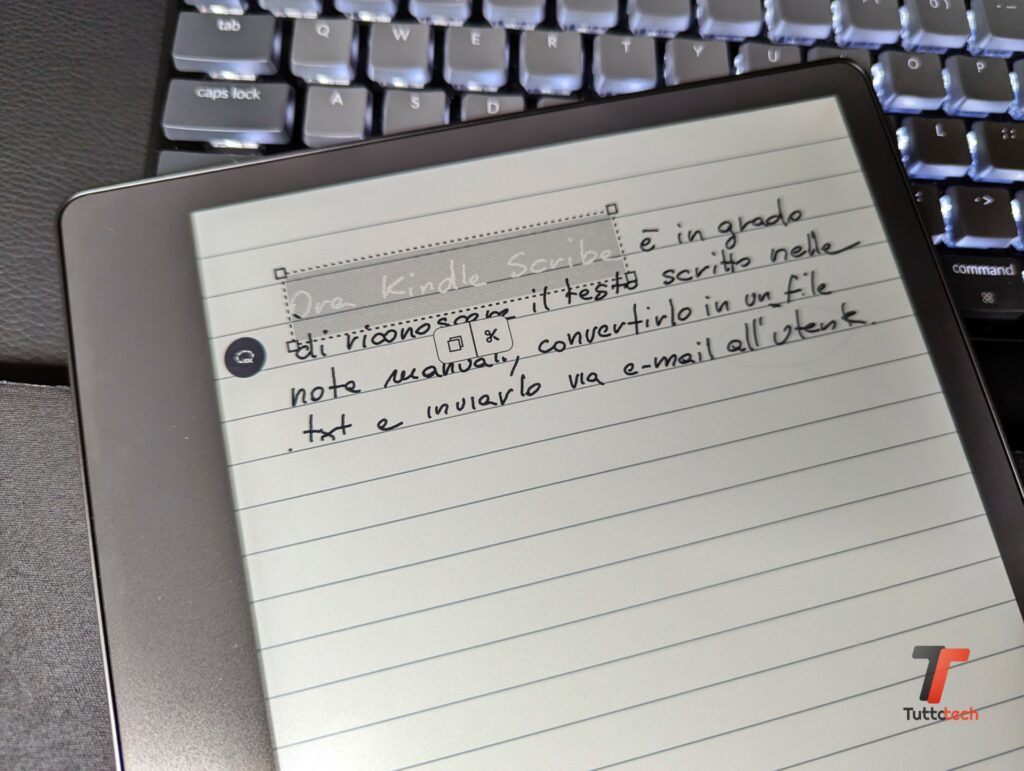 tab Q W E R T Y U O P
caps lock A S D L
command
Ora Kindle Scribe è in grado
di riconoscere il testo scritto nelle
note manuali, convertirlo in un file
.txt e inviarlo via e-mail all'utente.
Tuttotech